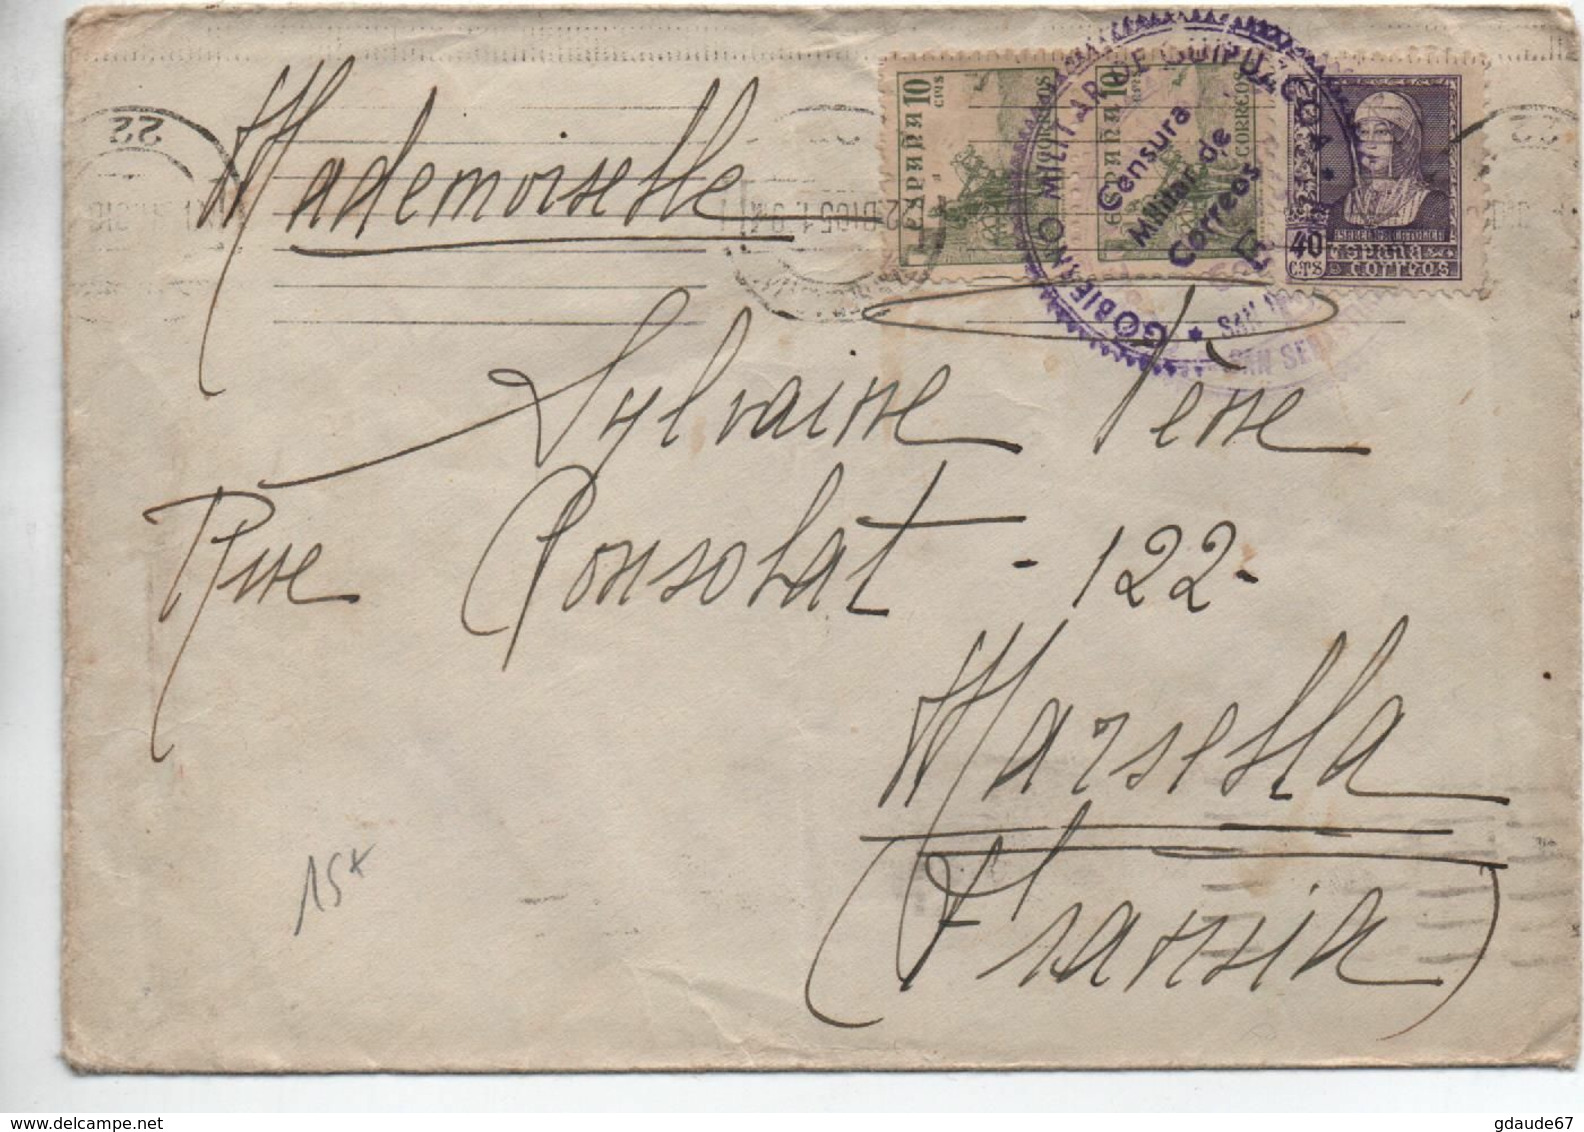 ESPAÑA 10 CTMS CORREOS
ESPAÑA 10 CORREOS
40 CTS ESPAÑA CORREOS
GOBIERNO MILITAR DE GUIPUZCOA
Censura
Militar de
Correos
SAN SEBASTIAN
22
Mademoiselle
Sylvaine
Rue Consolat - 122-
Marsella
(Francia)
15
gdaude67